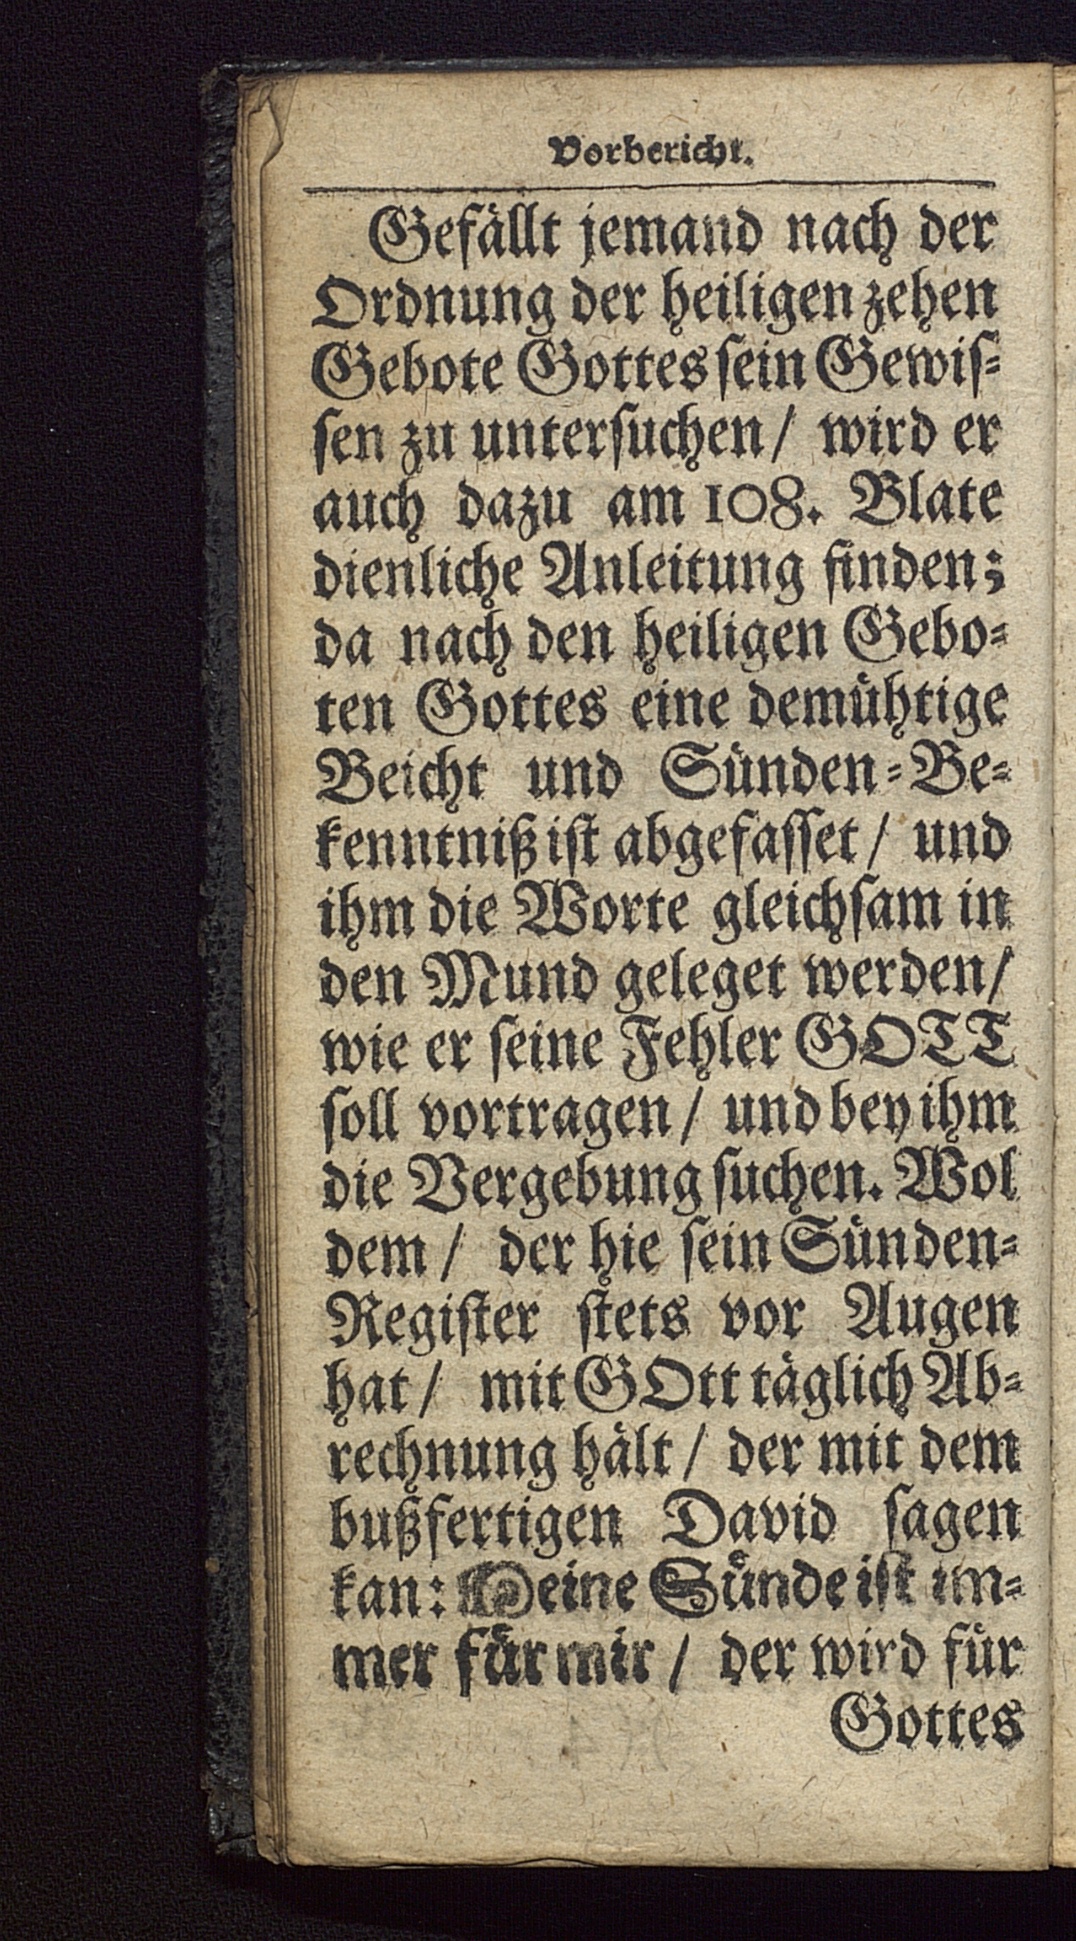 Vorbericht.
Gefällt jemand nach der
Ordnung der heiligen zehen
Gebote Gottes sein Gewis⸗
sen zu untersuchen/ wird er
auch dazu am 108. Blate
dienliche Anleitung finden;
da nach den heiligen Gebo⸗
ten Gottes eine demühtige
Beicht und Sünden⸗Be⸗
kenntniß ist abgefasset/ und
ihm die Worte gleichsam in
den Mund geleget werden/
wie er seine Fehler GOTT
soll vortragen/ und bey ihm
die Vergebung suchen. Wol
dem/ der hie sein Sünden⸗
Register stets vor Augen
hat/ mit GOtt täglich Ab⸗
rechnung hält/ der mit dem
bußfertigen David sagen
kan: Meine Sünde ist im⸗
mer für mir/ der wird für
Gottes